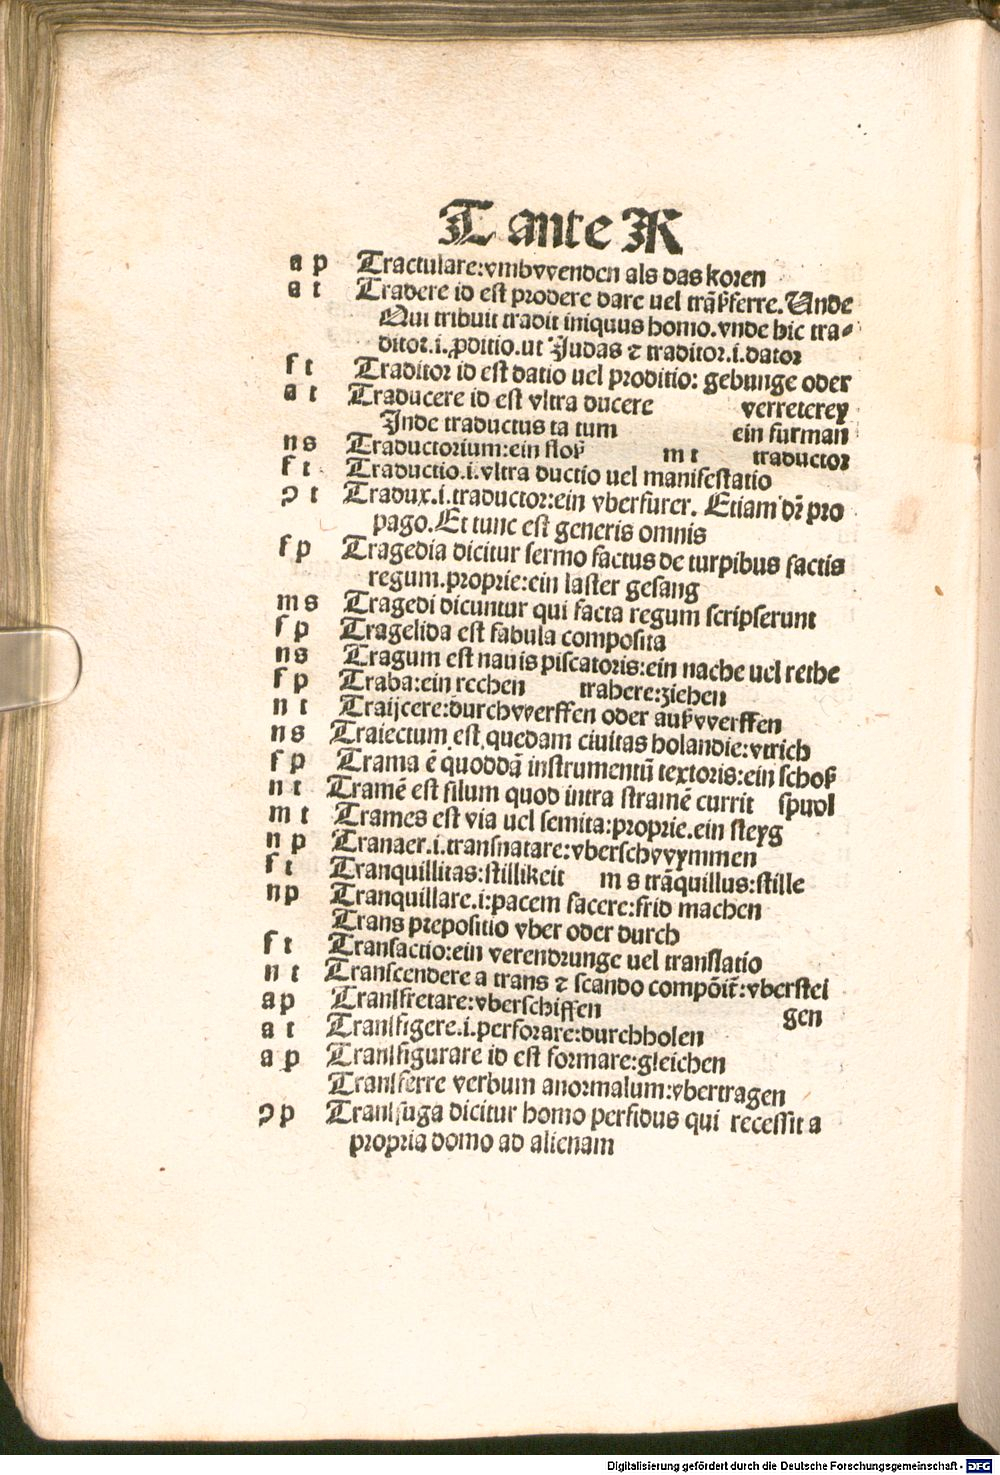 T ante R
a p Tractulare:vmbvvenden als das koren
a t Tradere id est prodere dare uel trãſferre. Unde
Qui tribuit tradit iniquus homo. vnde hic tra-
ditor.i. ꝓditio.ut Judas ⁊ traditor.i.dator
f t Traditor id est datio uel proditio: gebunge oder
a t Traducere id est vltra ducere verreterey
Inde traductus ta tum ein furman
n s Traductorium:ein stoß m t traductor
f t Traductio.i.vltra ductio uel manifestatio
ɔ t Tradux.i.traductor:ein vberfurer. Etiam dr̃ pro
pago. Et tunc est generis omnis
f p Tragedia dicitur sermo factus de turpibus factis
regum.proprie:ein laster gesang
m s Tragedi dicuntur qui facta regum scripserunt
f p Tragelida est fabula composita
n s Tragum est nauis piscatoris:ein nache uel rethe
f p Traba:ein rechen trahere:ziehen
n t Traijcere:durchvverffen oder außvverffen
n s Traiectum est quedam ciuitas holandie:vtrich
f p Trama ẽ quoddã instrumentũ textoris:ein schoß
n t Tramẽ est filum quod intra stramẽ currit spuol
m t Trames est via uel semita:proprie.ein steyg
n p Tranaer.i.transnatare:vberschvvymmen
f t Tranquillitas:stillikeit m s trãquillus:stille
n p Tranquillare.i:pacem facere:frid machen
Trans prepositio vber oder durch
f t Transactio:ein verendrunge uel translatio
n t Transcendere a trans ⁊ scando compõit̃:vberstei
a p Transfretare:vberschiffen gen
a t Transfigere.i.perforare:durchholen
a p Transfigurare id est formare:gleichen
Transferre verbum anormalum:vbertragen
ɔ p Transfuga dicitur homo perfidus qui recessit a
propria domo ad alienam
Digitalisierung gefördert durch die Deutsche Forschungsgemeinschaft - DFG